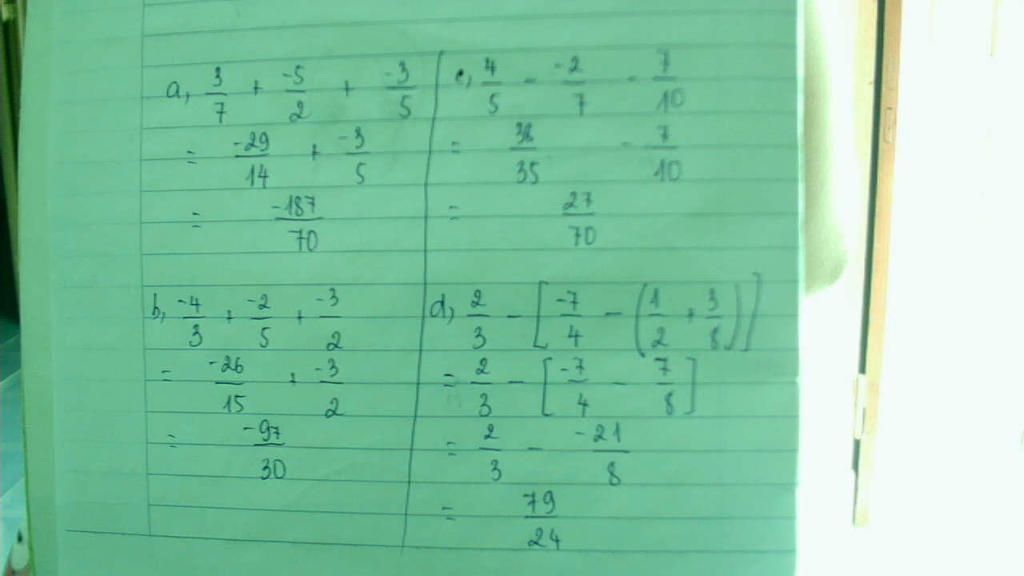 a, 3/7 + -5/2 + -3/5
= -29/14 + -3/5
= -187/70
b, -4/3 + -2/5 + -3/2
= -26/15 + -3/2
= -97/30
c, 4/5 - -2/7 - 7/10
= 38/35 - 7/10
= 27/70
d, 2/3 - [-7/4 - (1/2 + 3/8)]
= 2/3 - [-7/4 - 7/8]
= 2/3 - -21/8
= 79/24